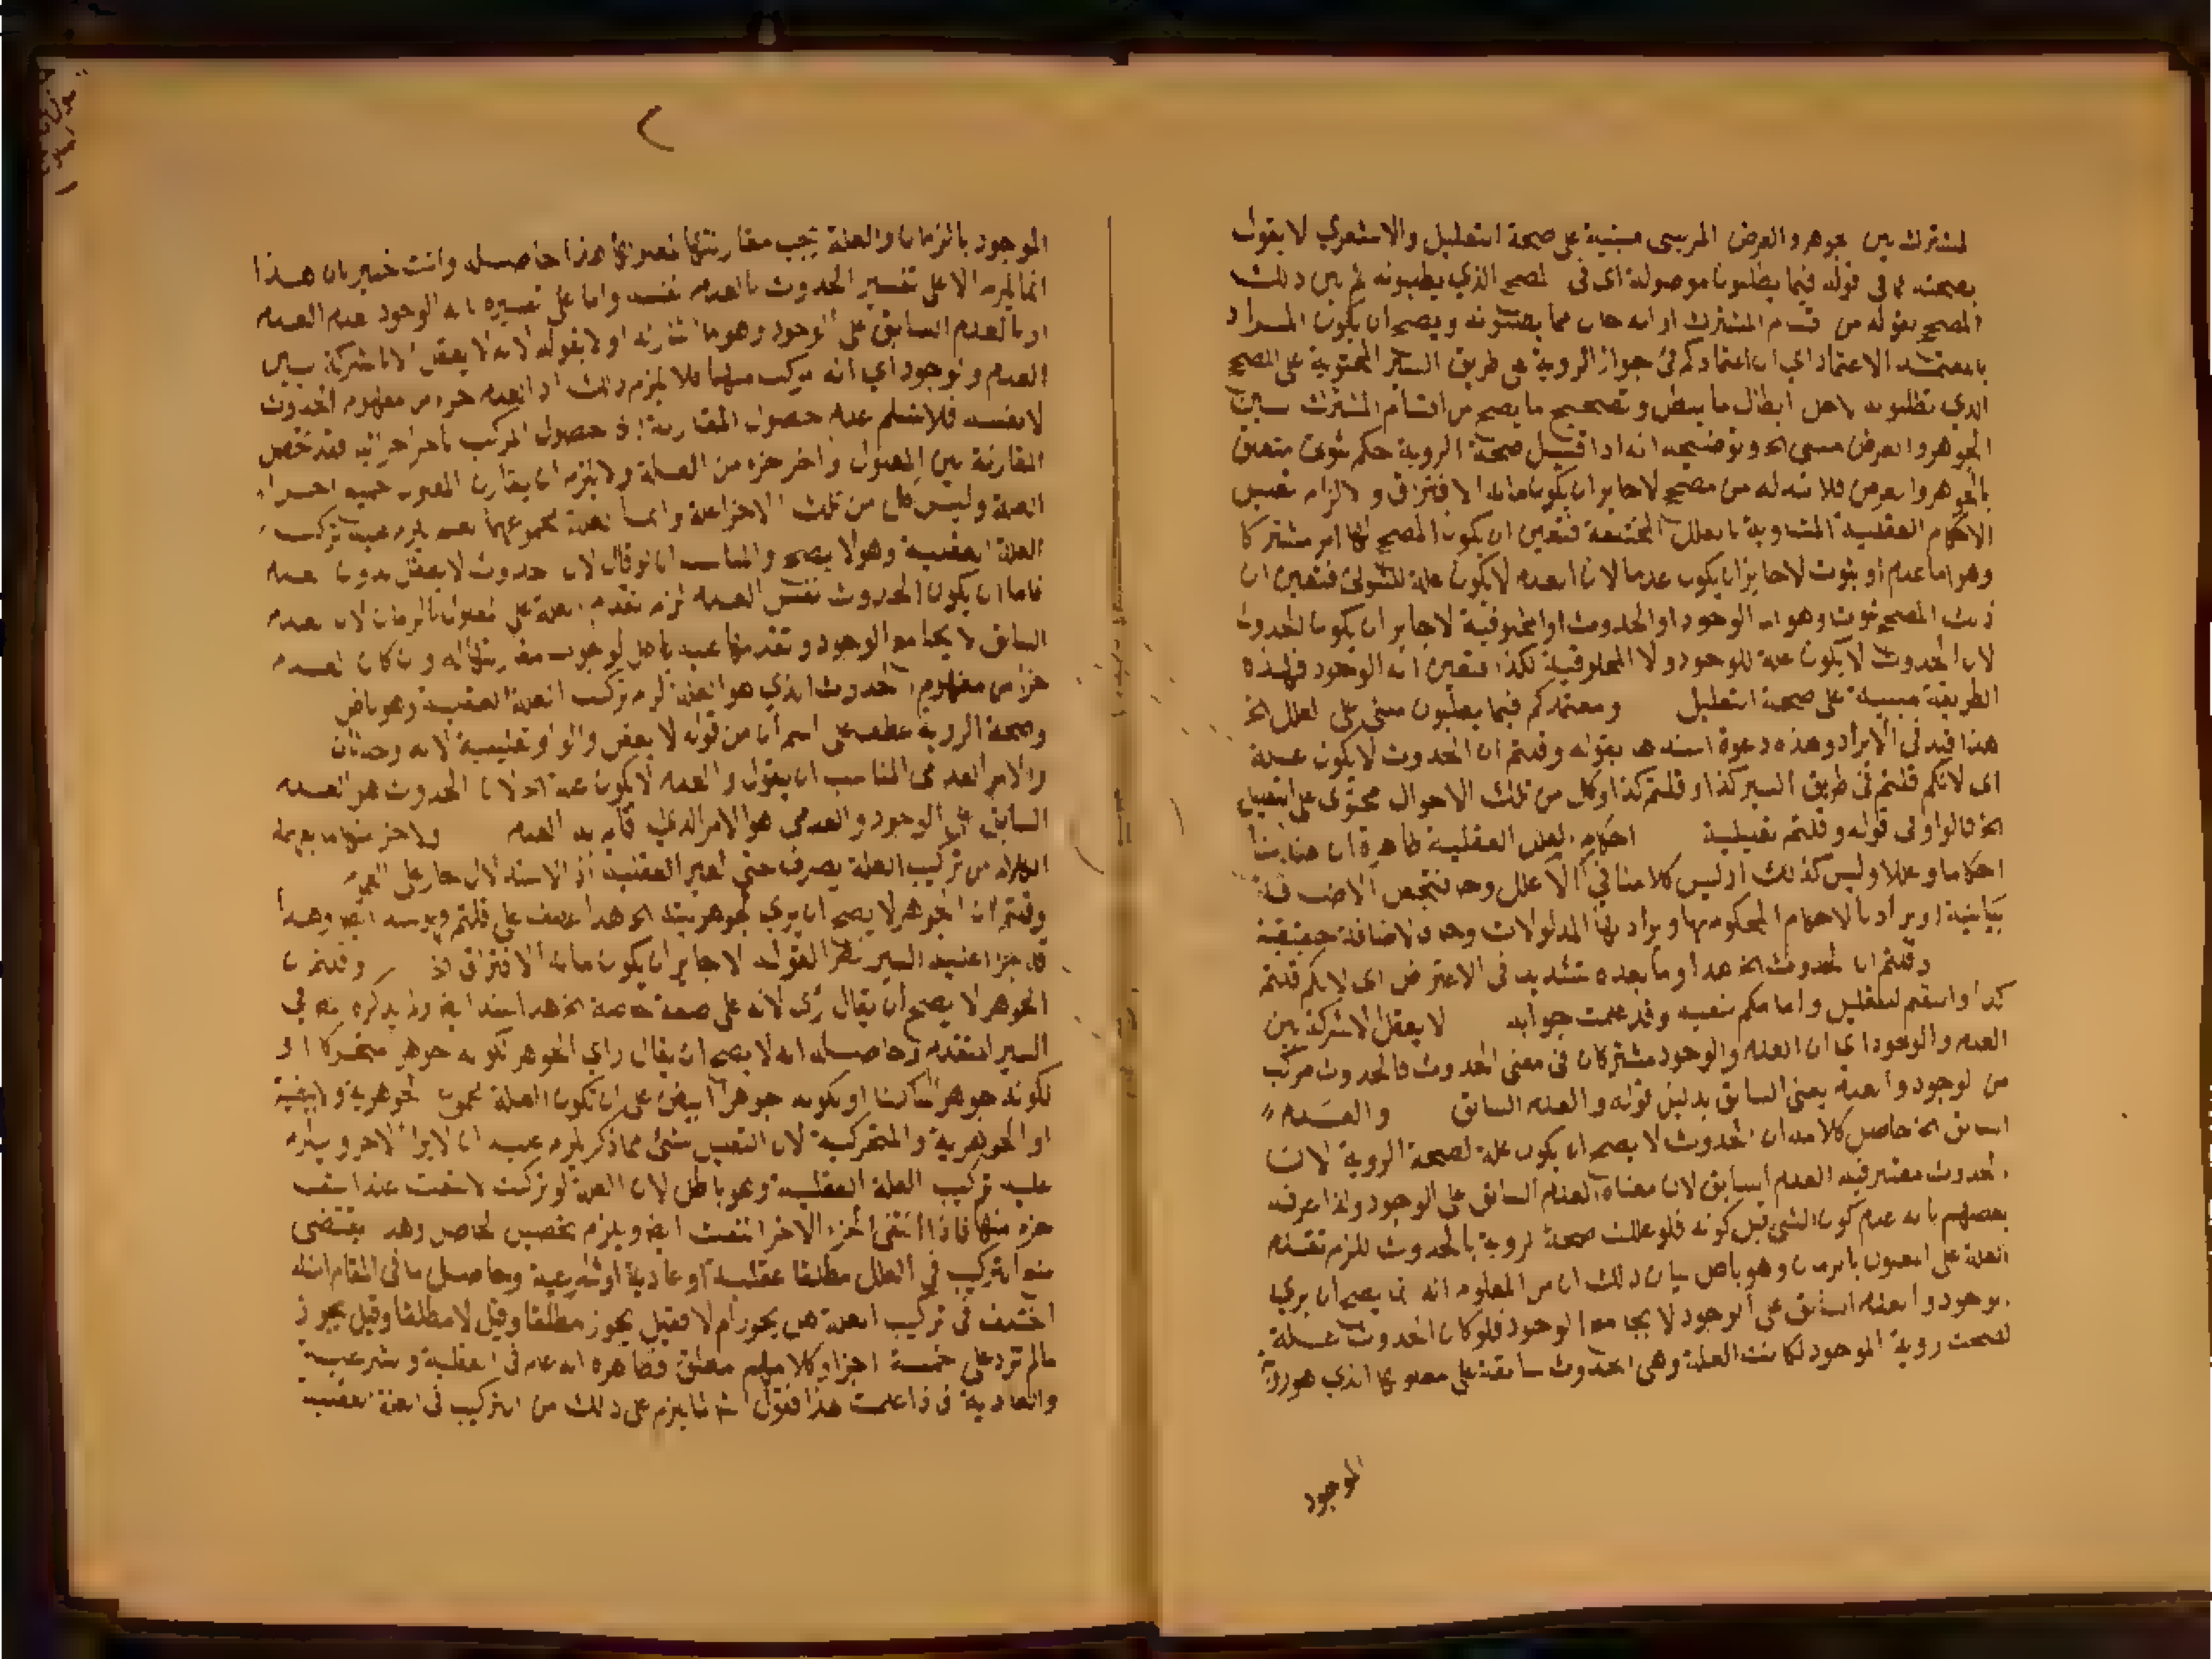 المشترك بين الجوهر والعرض المرئيين مبنية على صحة التعليل والاشعري لا يقول
بصحته فما في قوله فيما يطلبون موصولة اى فى المصحح الذي يطلبونه ثم بين ذلك
المصحح بقوله من المشترك ويصح ان يكون المراد
بالمعتمد الاعتماد اي ان اعتمادكم في جواز الروية على طريق السبر المحتوية على المصحح
الذي تطلبونه لاجل ابطال ما يبطل وتصحيح ما يصح من اقسام المشترك بين
الجوهر والعرض الخ وتوضيحه انه اذا قيل صحة الروية حكم ثبوتى متعلق
بالجوهر والعرض فلا بد له من مصحح لا جايز ان يكون ما به الافتراق والا لزم تعليل
الاحكام العقلية المتساوية بالعلل المختلفة فتعين ان يكون المصحح لها امر مشتركا
وهو اما عدم او ثبوت لا جايز ان يكون عدما لان العدم لا يكون علة للثبوتى فتعين ان
ذلك المصحح ثبوت وهو اما الوجود او الحدوث او المخلوقية لا جايز ان يكون الحدوث
لان الحدوث لا يكون علة للوجود ولا المخلوقية لكذا فتعين انه الوجود فهذه
الطريقة مبنية على صحة التعليل ومعتمدكم فيما يطلبون مبنى على العلل الخ
هذا قيد فى الايراد وهذه دعوة اسندها بقوله وقلتم ان الحدوث لا يكون علة
اى لانكم قلتم فى طريق السبر كذا وقلتم كذا وكل من تلك الاحوال محتوى على التعليل
الخ فالواو فى قوله وقلتم تعليلية احكام العلل العقلية ظاهره ان هنا
احكاما وعللا وليس كذلك اذ ليس كلامنا في الا علل وح فتجعل الاضافة
بيانية او يراد بالاحكام المحكوم بها ويراد بها المدلولات وح فالاضافة حقيقية
وقلتم ان الحدوث الخ هذا وما بعده تشديد فى الاعتراض اى لانكم قلتم
كذا وقد علمت جوابه لا يعقل الا شركة بين
العدم والوجود اي ان العدم والوجود مشتركان فى معنى الحدوث فالحدوث مركب
من الوجود والعدم يعنى السابق بدليل قوله والعدم السابق والعدم
السابق الخ حاصل كلامه ان الحدوث لا يصح ان يكون علة لصحة الروية لان
الحدوث معتبر فيه العدم السابق لان معناه العدم السابق على الوجود ولذا عرفه
بعضهم بانه عدم كون الشى قبل كونه فلو عللت صحة الروية بالحدوث للزم تقدم
العلة على المعلول بالزمان وهو باطل بيان ذلك ان من المعلوم انه انما يصح ان يري
الموجود والعدم السابق على الوجود لا يجامع الوجود فلو كان الحدوث علة
لصحت روية الموجود لكانت العلة وهى الحدوث سابقة على معلولها الذي هو روية
الموجود
الموجود بالزمان والعلة يجب مقارنتها لمعلولها هذا حاصله وانت خبير بان هذا
انما يلزم الا على تفسير الحدوث بالعدم نفسه واما على تفسيره بانه الوجود بعد العدم
او بالعدم السابق على الوجود وهو ما اشار له اولا بقوله لانه لا يعقل الا بالشركة بين
العدم والوجود اي انه مركب منهما فلا يلزم ذلك اذ العدم جزء من مفهوم الحدوث
لا نفسه فلا نسلم عدم حصول المقارنة اذ حصول المركب باخر اجزائه فقد تحصل
المقارنة بين المعلول واخر جزء من العلة ولا يلزم ان يقارن المعلول جميع اجزاء
العلة وليس كل من تلك الاجزا علة وانما العلة مجموعهما نعم يلزم عليه تركيب
العلة العقلية وهو لا يصح والمناسب ان لو قال لان الحدوث لا يعقل بدون عدم
فاما ان يكون الحدوث نفس العدم لزم تقدم العلة على المعلول بالزمان لان العدم
السابق لا يجامع الوجود وتقدمها عليه باطل لوجوب مقارنتها له وان كان العدم
جزا من مفهوم الحدوث الذي هو العلة لزم تركيب العلة العقلية وهو باطل
وصحة الروية عطف على اسم ان من قوله لا يعقل والواو تعليلية
والامر العدمى المناسب ان يقول والعدم لا يكون علة اذ لا الحدوث هو العدم
السابق على الوجود والعدمى هو الامر الذي قام به العدم
المراد من تركيب العلة يصرف حتى لغير العقلية
وقلتم ان الجوهر لا يصح ان يري لجوهريته الخ هذا عطف على قلتم
لا جايز ان يكون ما به الافتراق الخ وقلتم ان
الجوهر لا يصح ان يقال رئى لانه على صفة خاصة الخ
السبر المتقدم وحاصله انه لا يصح ان يقال راي الجوهر لكونه جوهر متحركا او
لكونه جوهرا ساكنا او لكونه جوهرا ابيض على ان تكون العلة مجموع الجوهرية والابيضية
او الجوهرية والمتحركية لان التعليل بشئ مما ذكر يلزم عليه ان لا يرا الاخر ويلزم
عليه تركيب العلة العقلية وهو باطل لان العلة لو تركبت لانتفت عند انتفاء
جزء منها فاذا انتفى الجزء الاخر انتفت ايضا ويلزم تحصيل الحاصل وهذا يقتضى
منع التركيب في العلل مطلقا عقلية او عادية او شرعية وحاصل ما فى المقام انه
اختلف فى تركيب العلة هل يجوز ام لا فقيل يجوز مطلقا وقيل لا مطلقا وقيل يجوز
مالم تزد على خمسة اجزا وكلامهم مطلق وظاهره انه عام فى العقلية والشرعية
والعادية فاذا علمت هذا فقول الش انما يلزم على ذلك من التركيب فى العلة العقلية